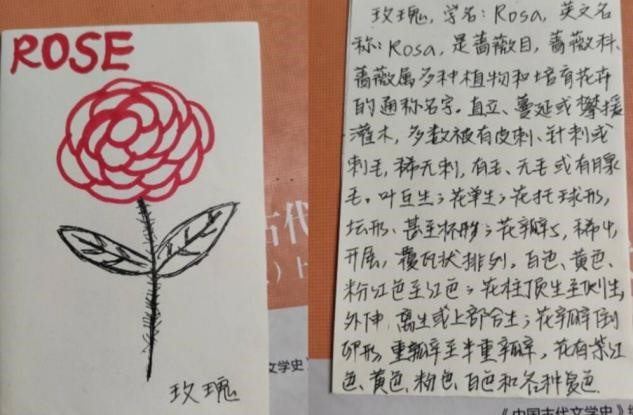 ROSE
玫瑰
古代
）上
文学史》
玫瑰,学名:Rosa,英文名
称:Rosa,是蔷薇目,蔷薇科、
蔷薇属多种植物和培育花卉
的通称名字。直立、蔓延或攀援
灌木,多数被有皮刺、针刺或
刺毛,稀无刺,有毛、无毛或有腺
毛。叶互生;花单生;花托球形,
坛形、甚至杯形;花瓣5,稀4,
开展,覆瓦状排列,白色、黄色、
粉红色至红色;花柱顶生至侧生,
外伸,离生或上部合生;花瓣倒
卵形,重瓣至半重瓣,花有紫红
色、黄色、粉色、白色和各种复色.
《中国古代文学史》